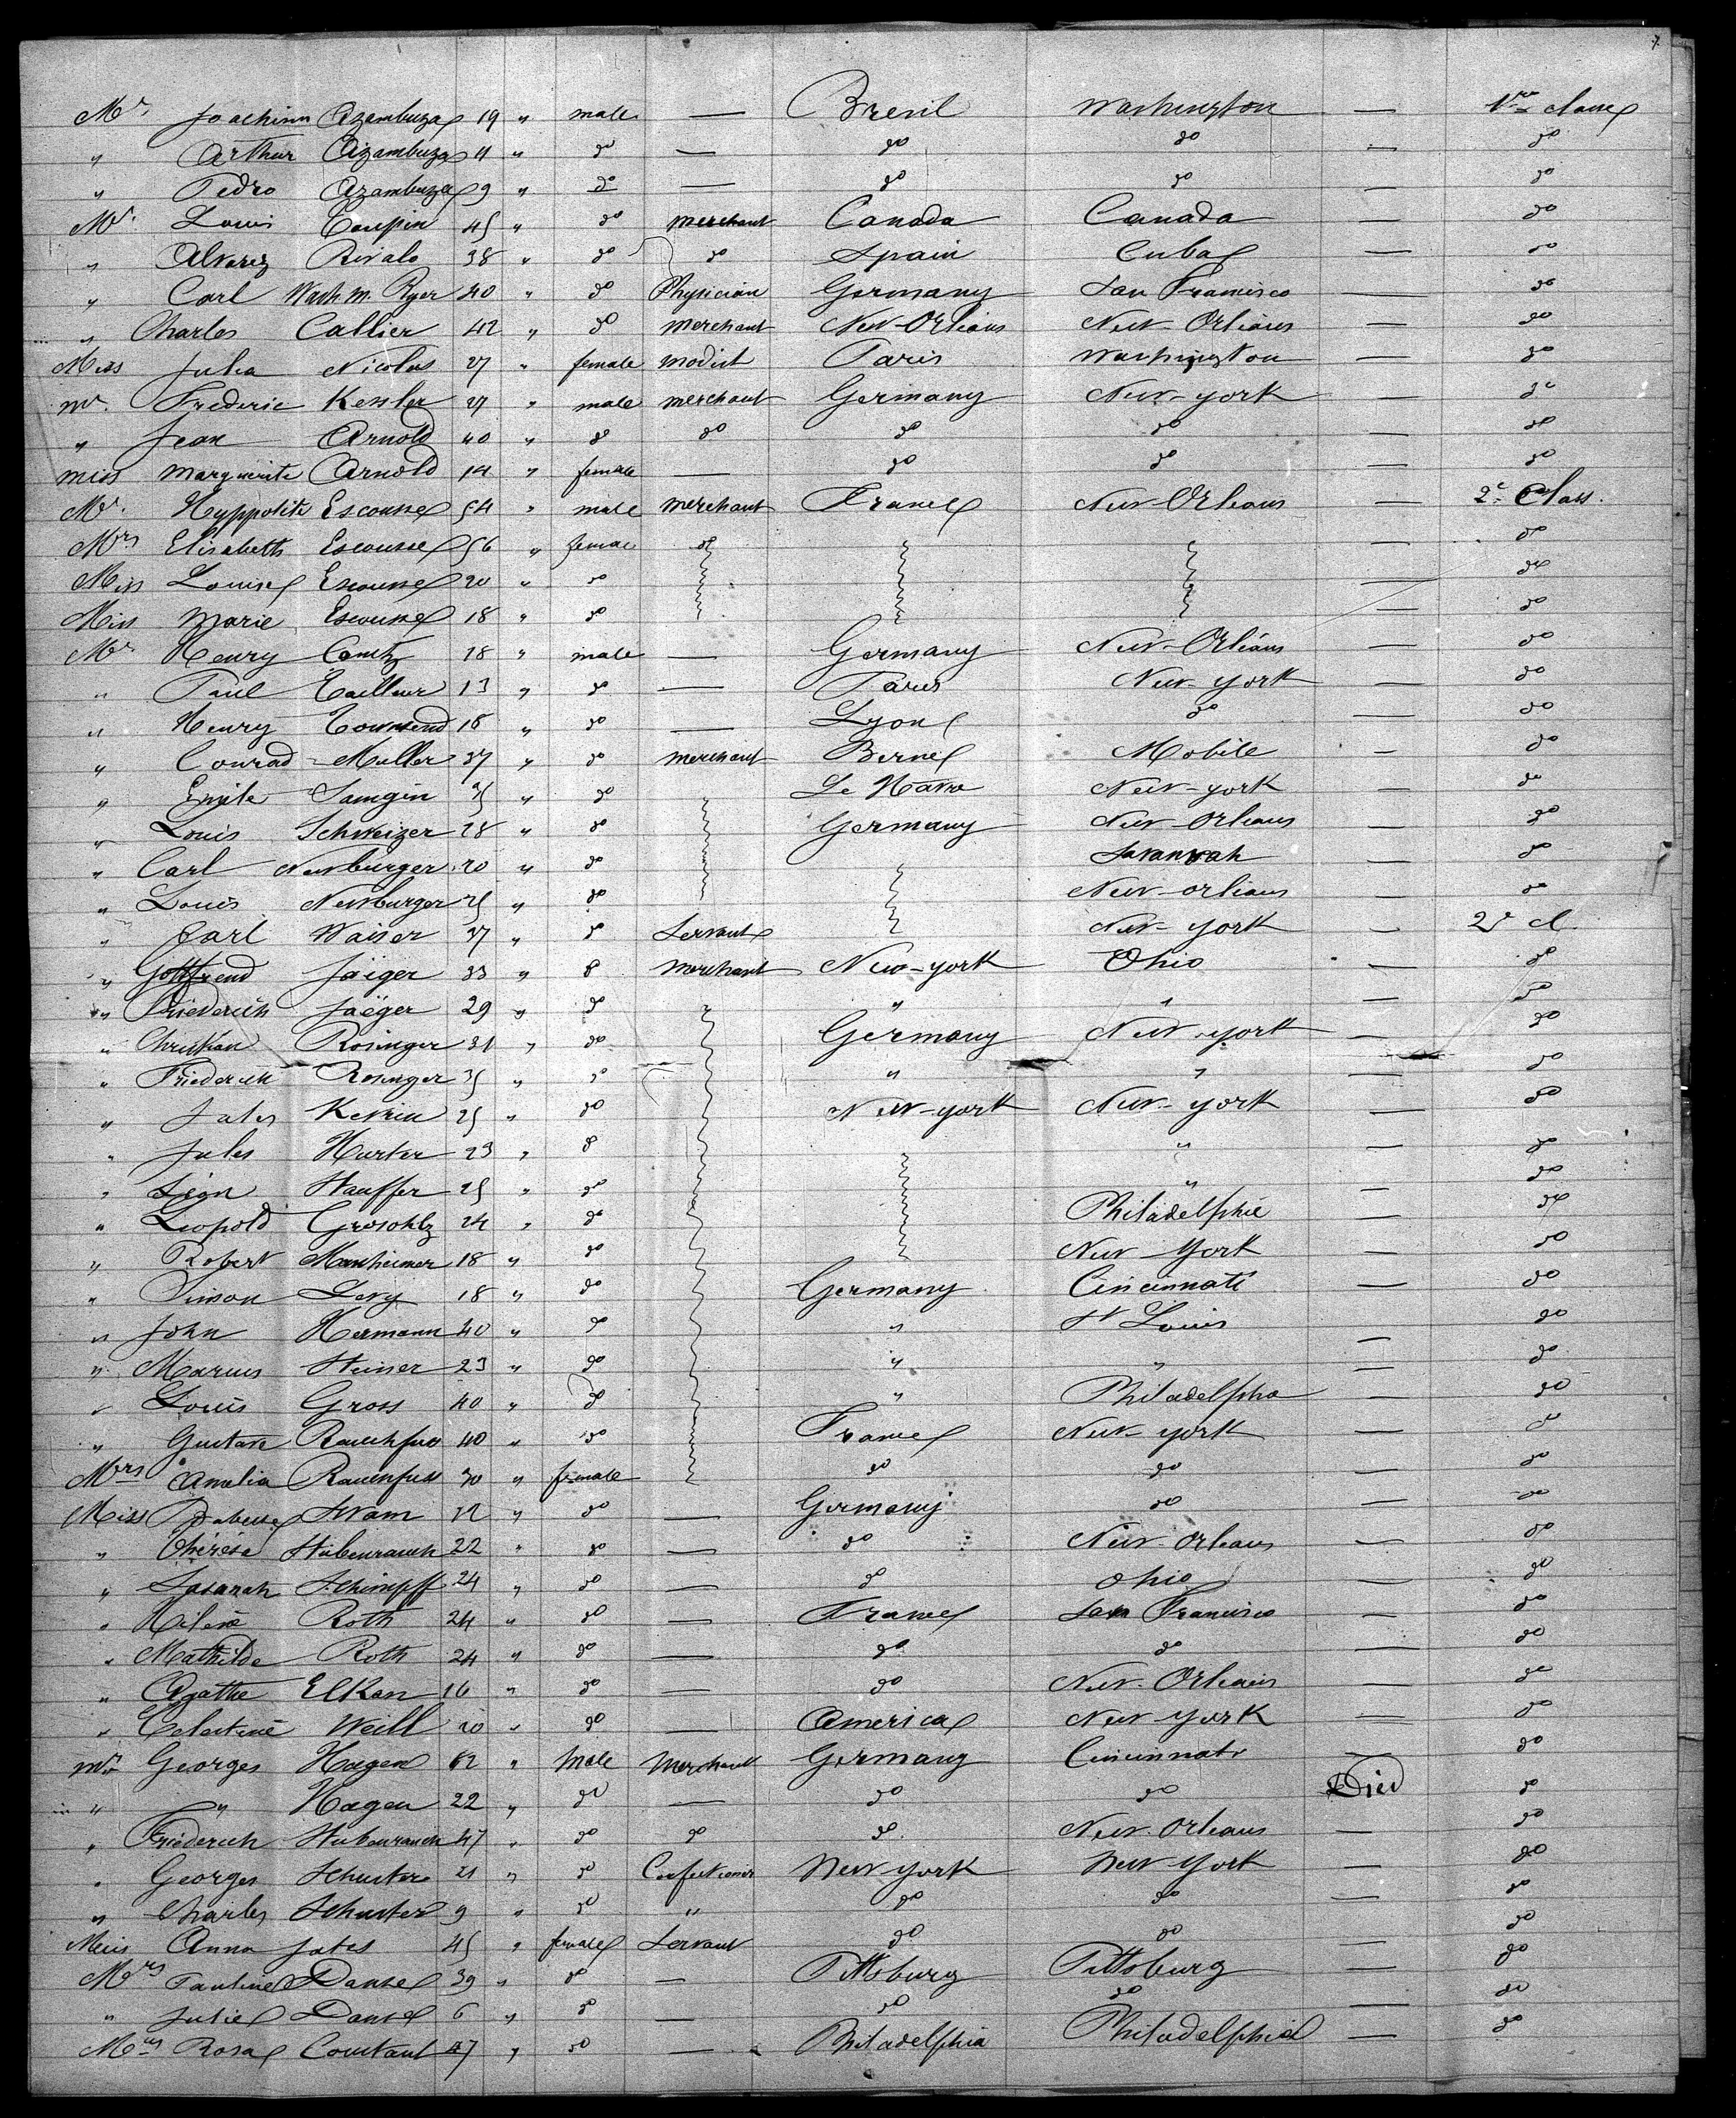 7
Mr Joachim Azambuza 19 " male — Bresil Washington — 1re classe
" Arthur Azambuza 11 " do — do do — do
" Pedro Azambuza 9 " do — do do — do
Mr. Louis Coupin 45 " do merchant Canada Canada — do
" Alvarez Rivalo 38 " do do Spain Cuba — do
" Carl Wash. m. Ryer 40 " do Physician Germany San Francisco — do
" Charles Callier 42 " do merchant New-Orleans New-Orleans — do
Miss Julia Nicolas 27 " female modist Paris Washington — do
Mr. Frederic Kessler 27 " male merchant Germany New-york — do
" Jean Arnold 40 " do do do do — do
miss Marguerite Arnold 14 " female — do do — do
Mr. Hyppolite Escousse 54 " male merchant France New-Orleans — 2e Class.
Mrs Elisabeth Escousse 56 " female do — do
Miss Louise Escousse 20 " do — do
Miss Marie Escousse 18 " do — do
Mr Henry 18 " male — Germany New-Orléans — do
" Paul Tailleur 13 " do — Paris New-york — do
" Henry Townsend 18 " do — Lyon do — do
" Conrad Muller 37 " do merchant Berne Mobile — do
" Emile Samgin " do Le Havre New-york — do
" Louis Schweizer 28 " do Germany New-Orleans — do
" Carl Newburger 20 " do Savannah — do
" Louis Newburger 25 " do New-orleans — do
" Carl Waiser 37 " do Servant New-york — 2e cl.
" Gottfriend Jaëger 33 " do merchant New-york Ohio — do
" Friederich Jaëger 29 " do " " — do
" Christian Rosinger 31 " do Germany New-york — do
" Friederich Rosinger 35 " do " " — do
" Jules 25 " do New-york New-york — do
" Jules Hurter 23 " do " — do
" Léon Stauffer 25 " do " — do
" Leopold 24 " do Philadelphie — do
" Robert Manheimer 18 " do New-York — do
" Simon Levy 18 " do Germany Cincinnati — do
" John Hermann 40 " do " St Louis — do
" Marcus Steiner 23 " do " " — do
" Louis Gross 40 " do " Philadelphia — do
" Gustave Rauchfuss 40 " do France New-york — do
Mrs Amalia Rauchfuss 30 " female do do — do
Miss 22 " do — Germany do — do
" Thérésa Stubenrauch 22 " do — do New-Orleans — do
" Schimpff 24 " do — do Ohio — do
" Hélène Roth 24 " do — France San Francisco — do
" Mathilde Roth 24 " do — do do — do
" Agathe Elkan 16 " do — do New-Orleans — do
" Celestine Weill 20 " do — America New-York — do
Mr Georges Hagen 62 " Male Merchant Germany Cincinnati — do
" " Hagen 22 " do — do do Died do
" Friederich Stubenrauch 47 " do do do. New-Orleans — do
" Georges Schuster 21 " do Confectioner New-york New York — do
" Charles Schuster 9 " do " do do — do
Miss Anna Jates 45 " female Servant do do — do
Mrs Pauline Danse 39 " do — Pittsburg Pittsburg — do
" Julie Danse 6 " do — do do — do
Mrs Rosa Constant 47 " do — Philadelphia Philadelphia — do